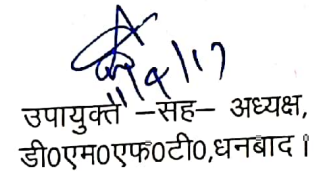 11/4/17
उपायुक्त –सह– अध्यक्ष,
डी0एम0एफ0टी0,धनबाद।